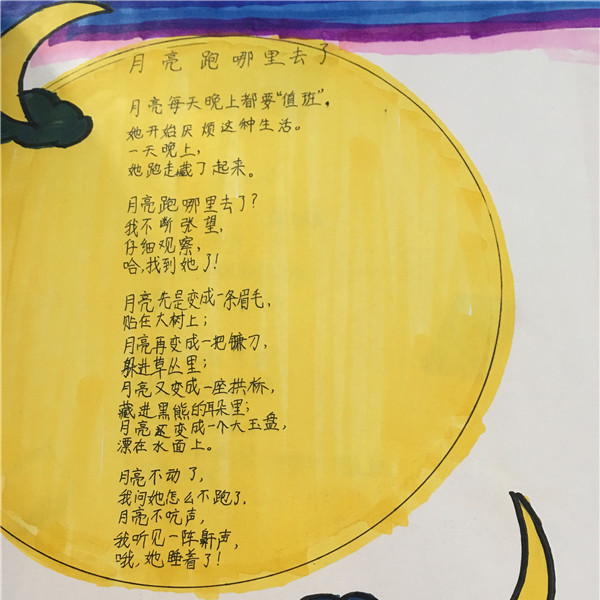 月亮跑哪里去了
月亮每天晚上都要“值班”，
她开始厌烦这种生活。
一天晚上，
她跑走藏了起来。
月亮跑哪里去了？
我不断张望，
仔细观察，
哈，找到她了！
月亮先是变成一条眉毛，
贴在大树上；
月亮再变成一把镰刀，
躲进草丛里；
月亮又变成一座拱桥，
藏进黑熊的耳朵里；
月亮还变成一个大玉盘，
漂在水面上。
月亮不动了，
我问她怎么不跑了，
月亮不吭声，
我听见一阵鼾声，
哦，她睡着了！